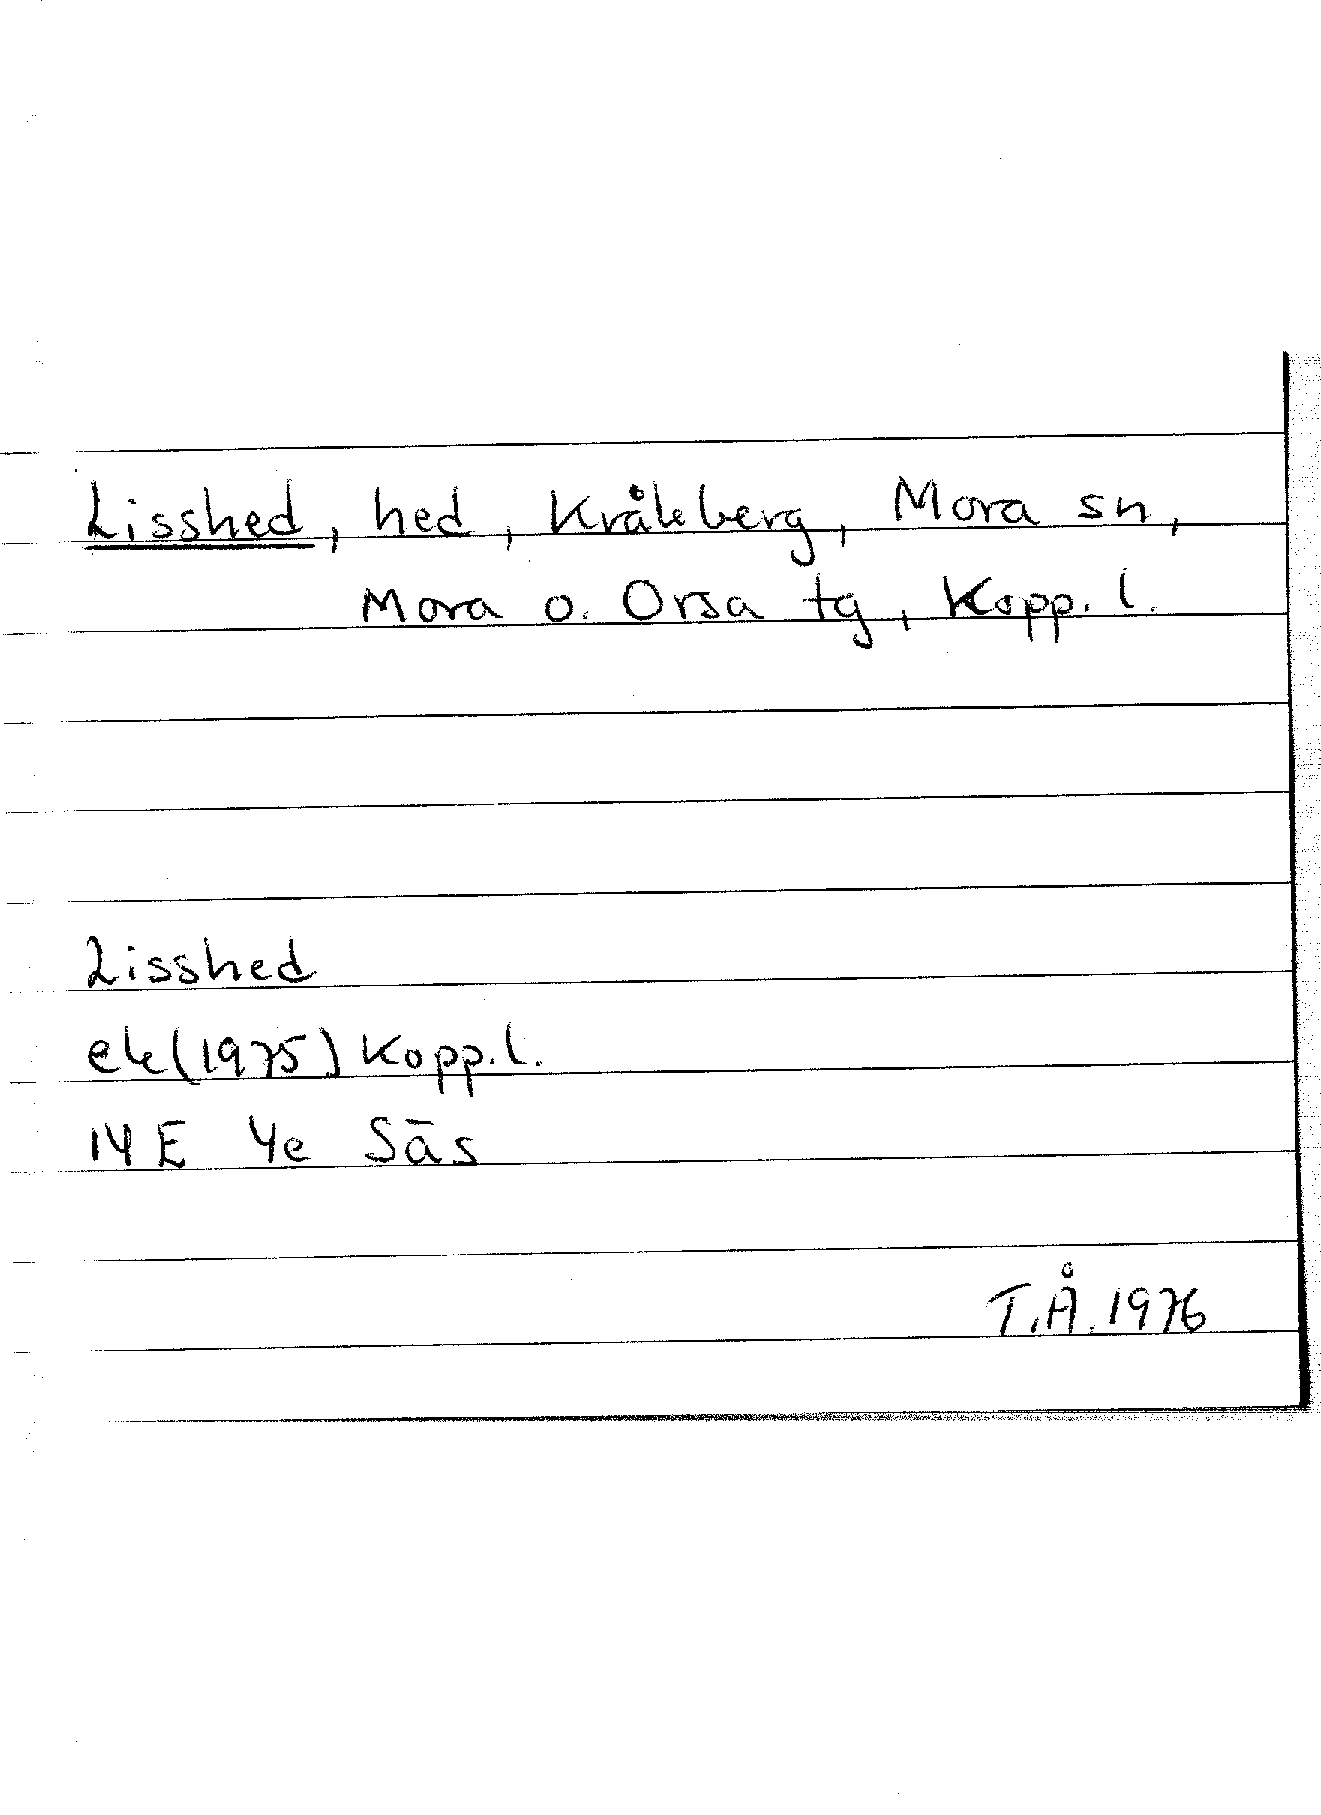 Lisshed, hed, Kråkberg, Mora sn,
Mora o. Orsa tg, Kopp. l.
Lisshed
ek (1975) Kopp. l.
14 E 4e Säs
T.Å. 1976